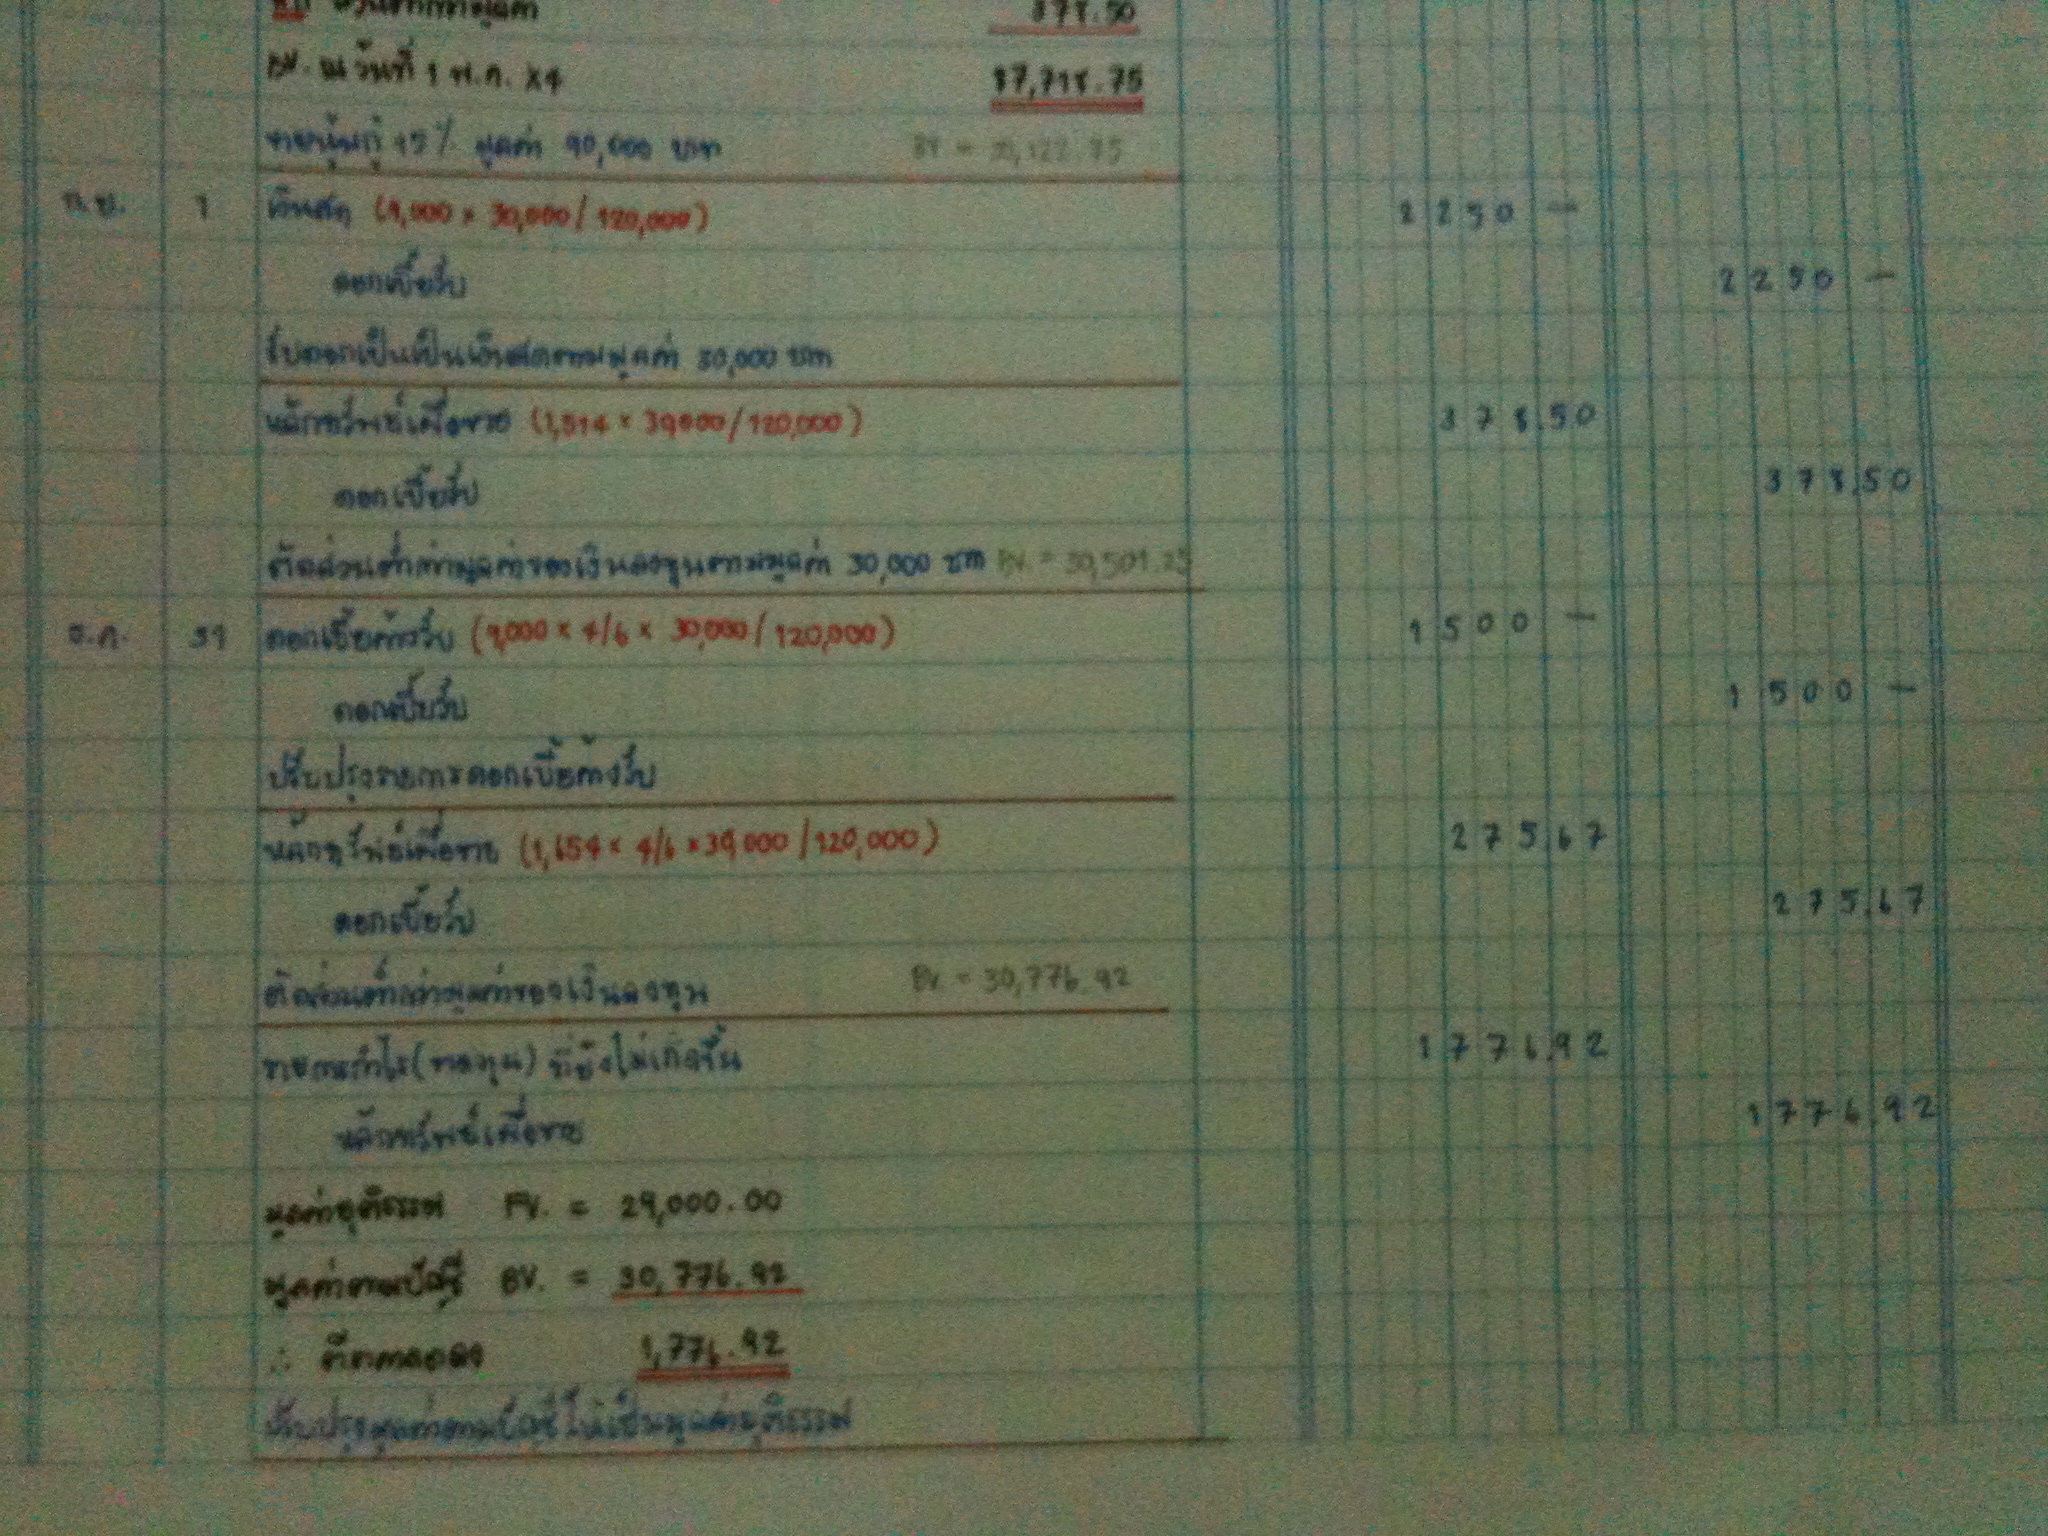 ส่วนต่ำกว่ามูลค่า 378.50
BV. ณ วันที่ 1 พ.ค. X4 87,718.75
ขายหุ้นกู้ 15% มูลค่า 90,000 บาท BV = 30,122.75
ก.ย. 1 เงินสด (9,000 × 30,000/120,000) 2250 –
ดอกเบี้ยรับ 2250 –
30,000 บาท
หลักทรัพย์เผื่อขาย (1,514 × 30,000/120,000) 378.50
ดอกเบี้ยรับ 378.50
ตัดส่วนต่ำกว่ามูลค่าของเงินลงทุนตามมูลค่า 30,000 บาท BV. = 30,501.25
ธ.ค. 31 ดอกเบี้ยค้างรับ (9,000 × 4/6 × 30,000/120,000) 1500 –
ดอกเบี้ยรับ 1500 –
ปรับปรุงรายการดอกเบี้ยค้างรับ
หลักทรัพย์เผื่อขาย (1,654 × 4/6 × 30,000/120,000) 275.67
ดอกเบี้ยรับ 275.67
ตัดส่วนต่ำกว่ามูลค่าของเงินลงทุน BV. = 30,776.92
รายการกำไร(ขาดทุน) ที่ยังไม่เกิดขึ้น 1776.92
หลักทรัพย์เผื่อขาย 1776.92
มูลค่ายุติธรรม FV. = 29,000.00
มูลค่าตามบัญชี BV. = 30,776.92
∴ ตีราคาลดลง 1,776.92
ปรับปรุงมูลค่าตามบัญชีให้เป็นมูลค่ายุติธรรม